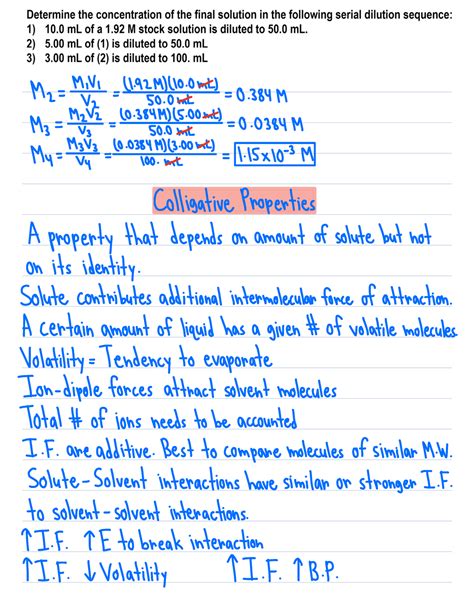 Determine the concentration of the final solution in the following serial dilution sequence:
1) 10.0 mL of a 1.92 M stock solution is diluted to 50.0 mL.
2) 5.00 mL of (1) is diluted to 50.0 mL
3) 3.00 mL of (2) is diluted to 100. mL
M₂ = M₁V₁/V₂ = (1.92 M)(10.0 mL)/50.0 mL = 0.384 M
M₃ = M₂V₂/V₃ = (0.384 M)(5.00 mL)/50.0 mL = 0.0384 M
M₄ = M₃V₃/V₄ = (0.0384 M)(3.00 mL)/100. mL = 1.15x10⁻³ M
Colligative Properties
A property that depends on amount of solute but not
on its identity.
Solute contributes additional intermolecular force of attraction.
A certain amount of liquid has a given # of volatile molecules
Volatility = Tendency to evaporate
Ion-dipole forces attract solvent molecules
Total # of ions needs to be accounted
I.F. are additive. Best to compare molecules of similar M.W.
Solute-Solvent interactions have similar or stronger I.F.
to solvent-solvent interactions.
↑I.F. ↑E to break interaction
↑I.F. ↓Volatility ↑I.F. ↑B.P.